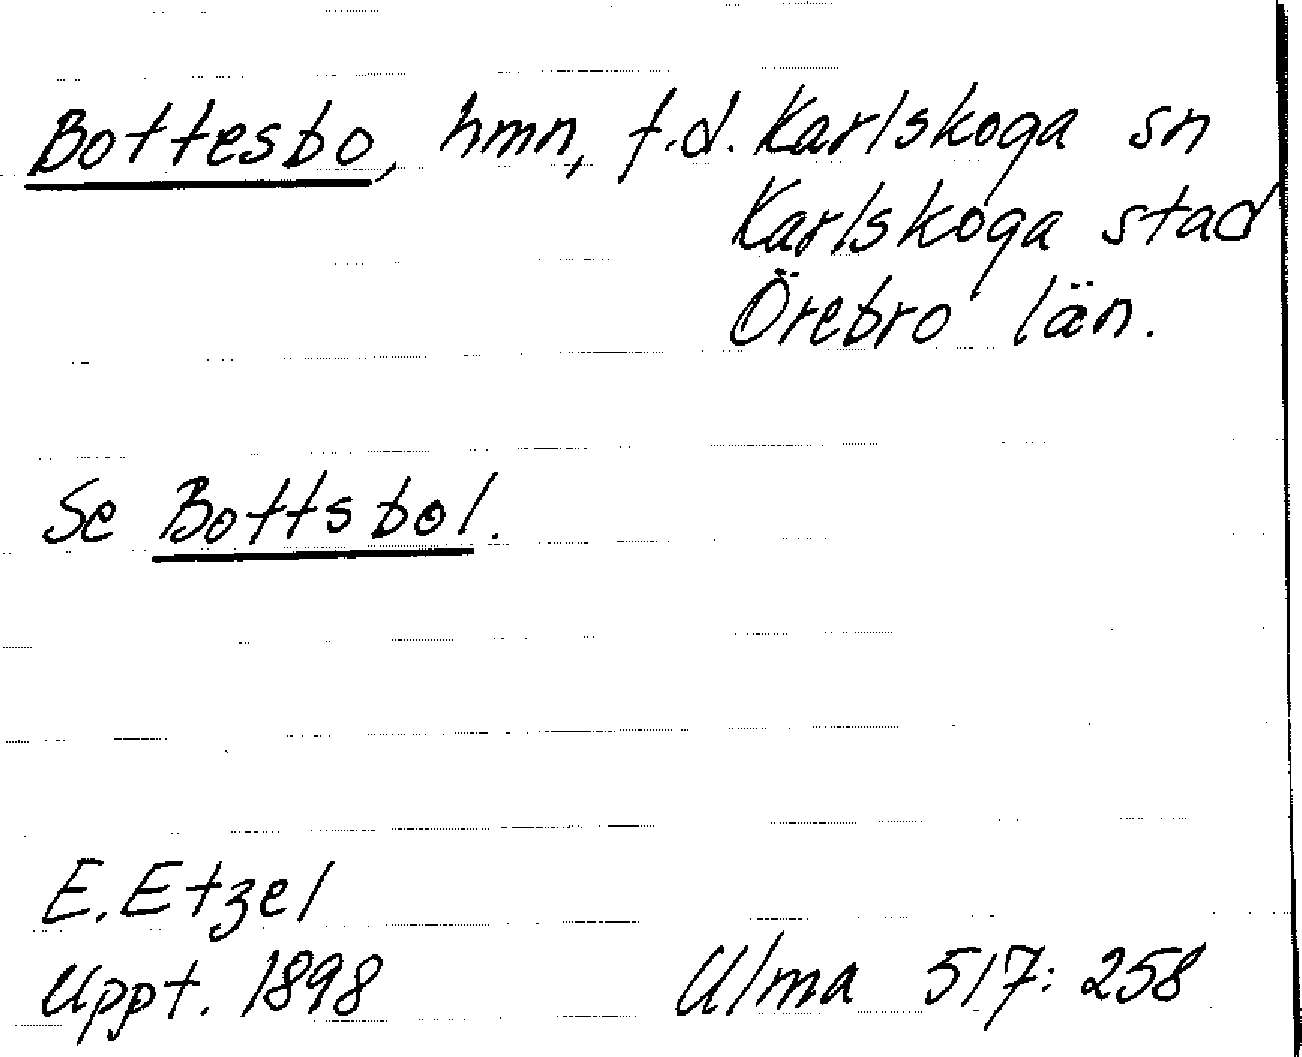 Bottesbo, hmn, f.d. Karlskoga sn
Karlskoga stad
Örebro län.
Se Bottsbol.
E. Etzel
Uppt. 1898
Ulma 517:258